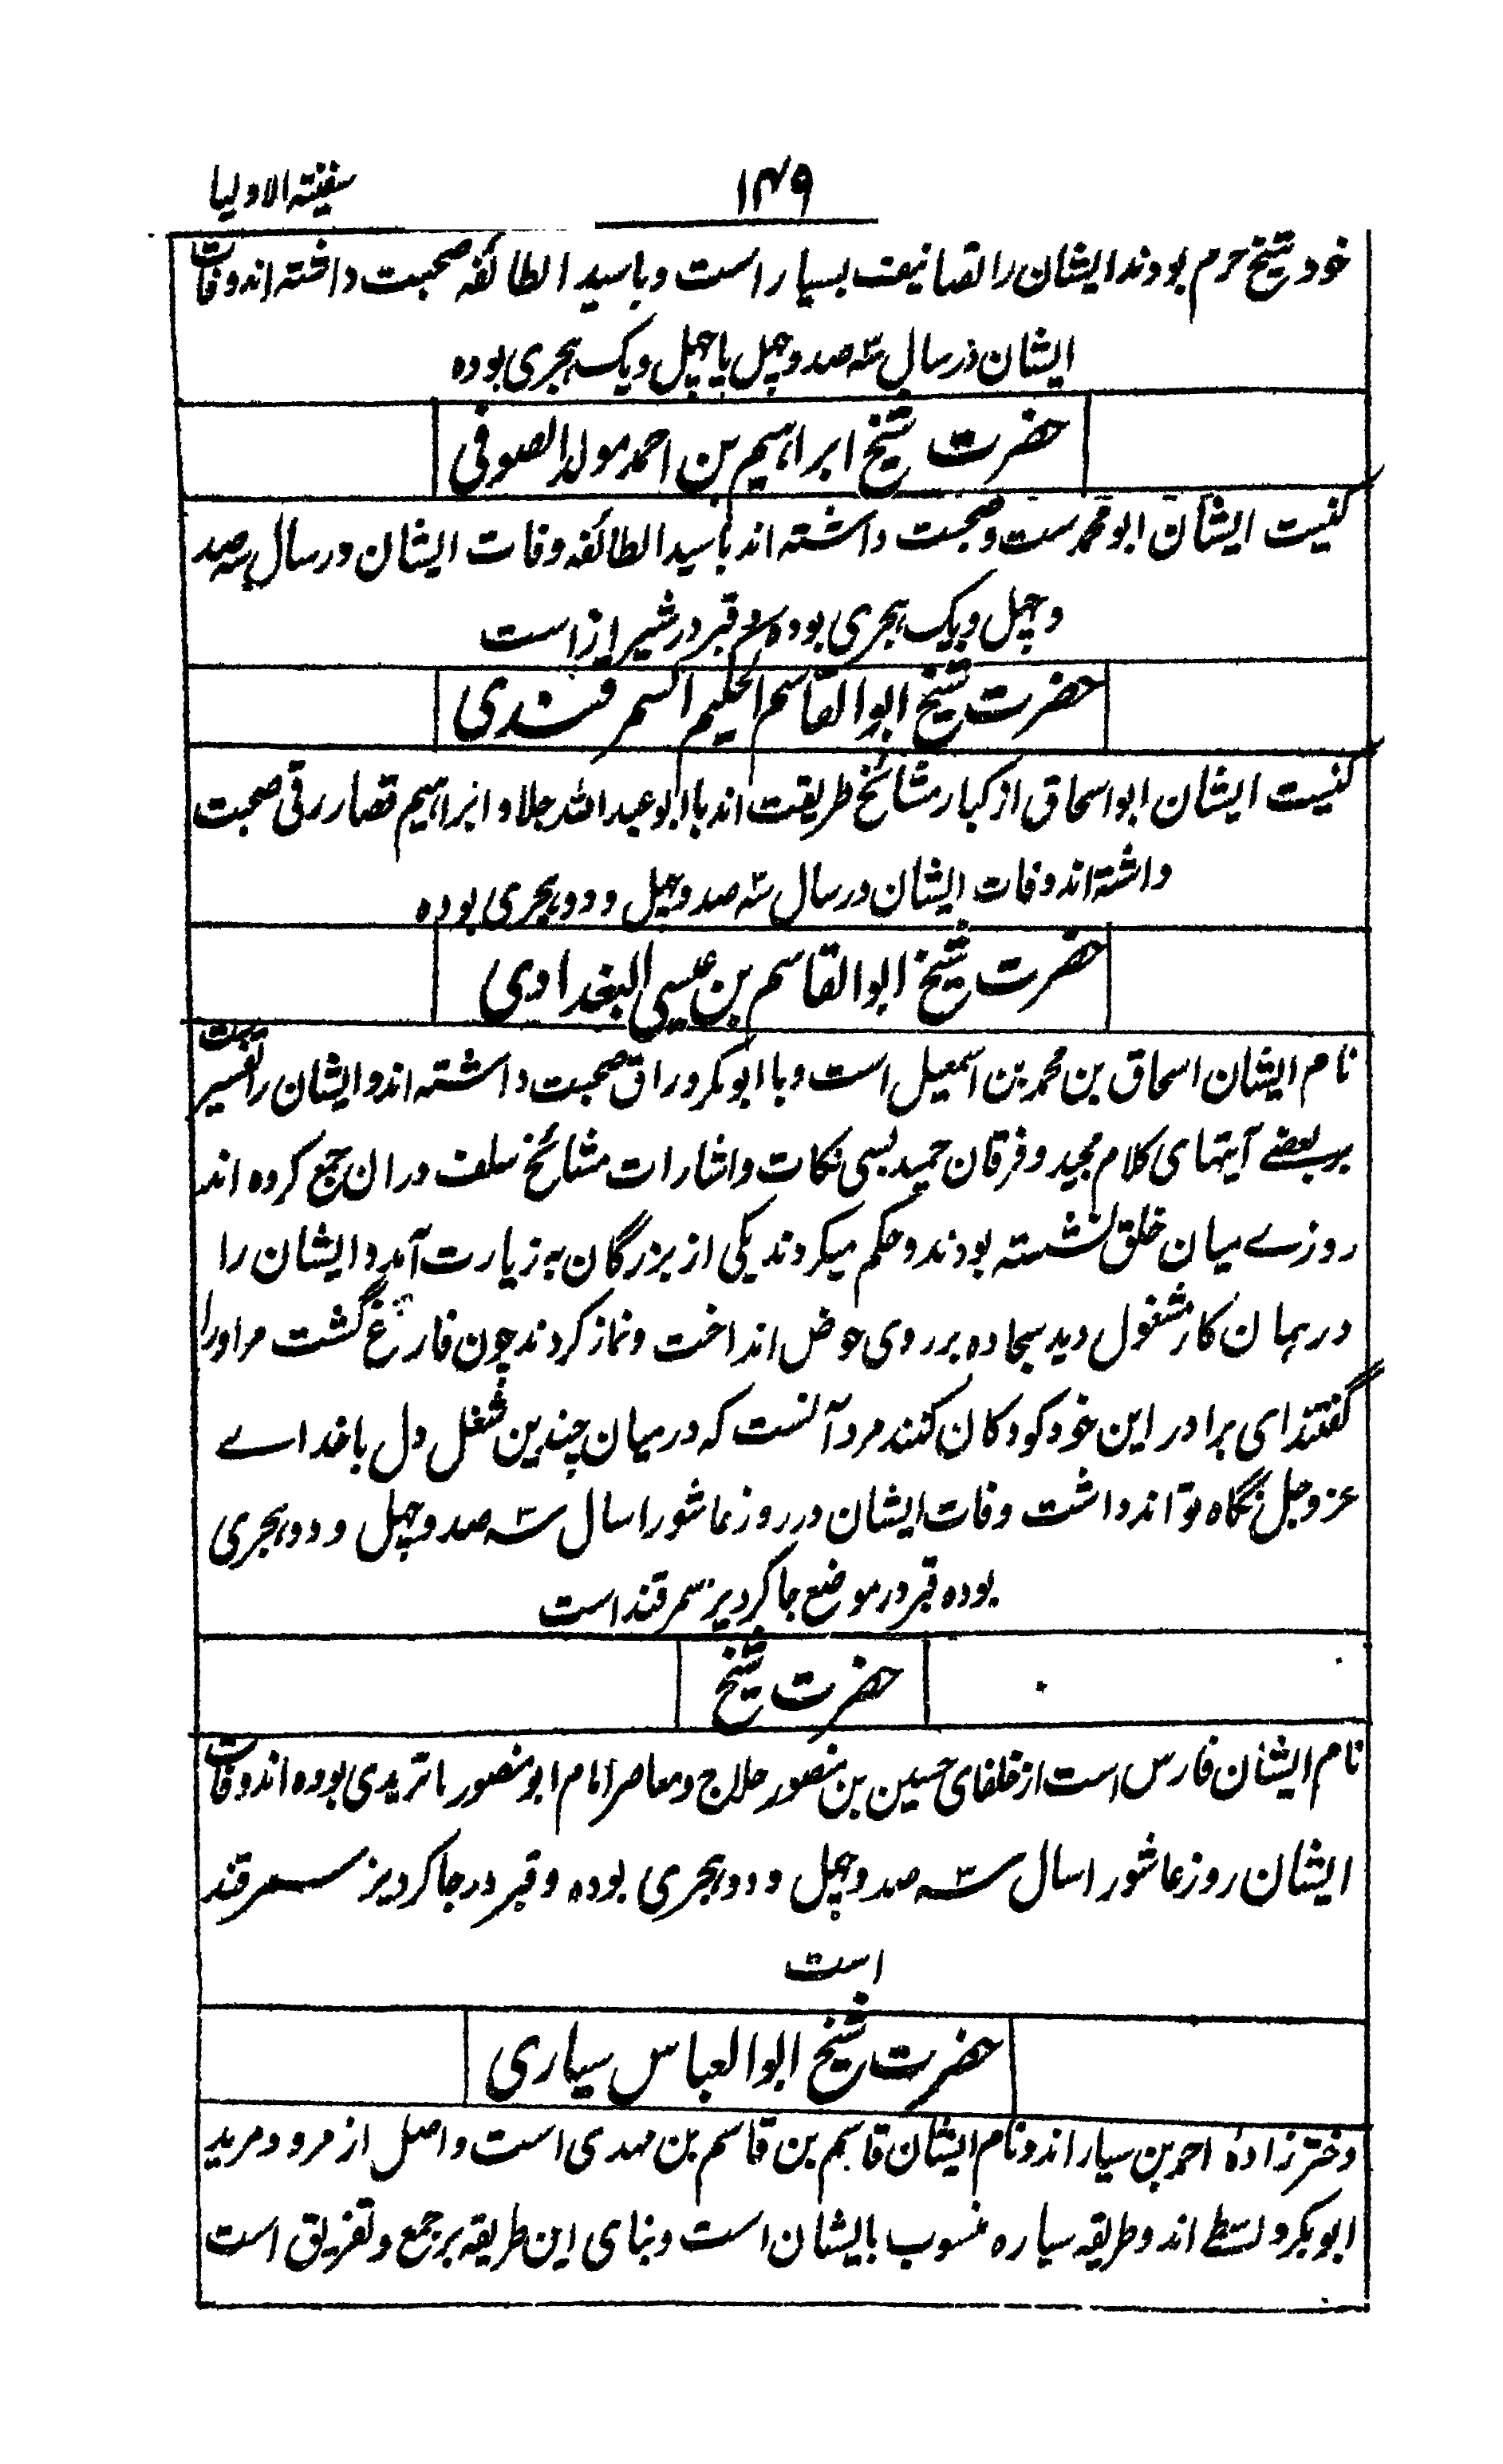 ۱۴۹
سفینۃ الاولیا
خود شیخ حرم بودند ایشان را تصانیف بسیار است و با سید الطائفہ صحبت داشتہ اند وفات
ایشان در سال سہ صد و چہل یا چہل و یک ہجری بودہ
حضرت شیخ ابراہیم بن احمد مولد الصوفی
کنیت ایشان ابو محمد ست و صحبت داشتہ اند با سید الطائفہ وفات ایشان در سال سہ صد
و چہل و یک ہجری بودہ و قبر در شیراز است
حضرت شیخ ابوالقاسم الحکیم السمرقندی
کنیت ایشان ابو اسحاق از کبار مشائخ طریقت اند با ابو عبد اللہ جلا و ابراہیم قصار رقی صحبت
داشتہ اند وفات ایشان در سال سہ صد و چہل و دو ہجری بودہ
حضرت شیخ ابوالقاسم بن عیسی البغدادی
نام ایشان اسحاق بن محمد بن اسمعیل است و با ابو بکر وراق صحبت داشتہ اند و ایشان را تفسیریست
بر بعضے آیتہای کلام مجید و فرقان حمید بسی نکات و اشارات مشائخ سلف در ان جمع کردہ اند
روزے میان خلق نشستہ بودند و حکم میکردند یکی از بزرگان بہ زیارت آمد و ایشان را
در ہمان کار مشغول دید سجادہ بر روی حوض انداخت و نماز کردند چون فارغ گشت مر او را
گفتند ای برادر این خود کودکان کنند مرد آنست کہ در میان چندین شغل دل با خداے
عز و جل نگاہ تواند داشت وفات ایشان در روز عاشورا سال سہ صد و چہل و دو ہجری
بودہ قبر در موضع جاکردیز سمرقند است
حضرت شیخ
نام ایشان فارس است از خلفای حسین بن منصور حلاج و معاصر امام ابو منصور ماتریدی بودہ اند وفات
ایشان روز عاشورا سال سہ صد و چہل و دو ہجری بودہ و قبر در جاکردیز سمرقند
است
حضرت شیخ ابوالعباس سیاری
دختر زادۂ احمد بن سیار اند و نام ایشان قاسم بن قاسم بن مہدی است و اصل از مرو و مرید
ابو بکر واسطے اند و طریقہ سیارہ منسوب بایشان است و بنای این طریقہ بر جمع و تفریق است